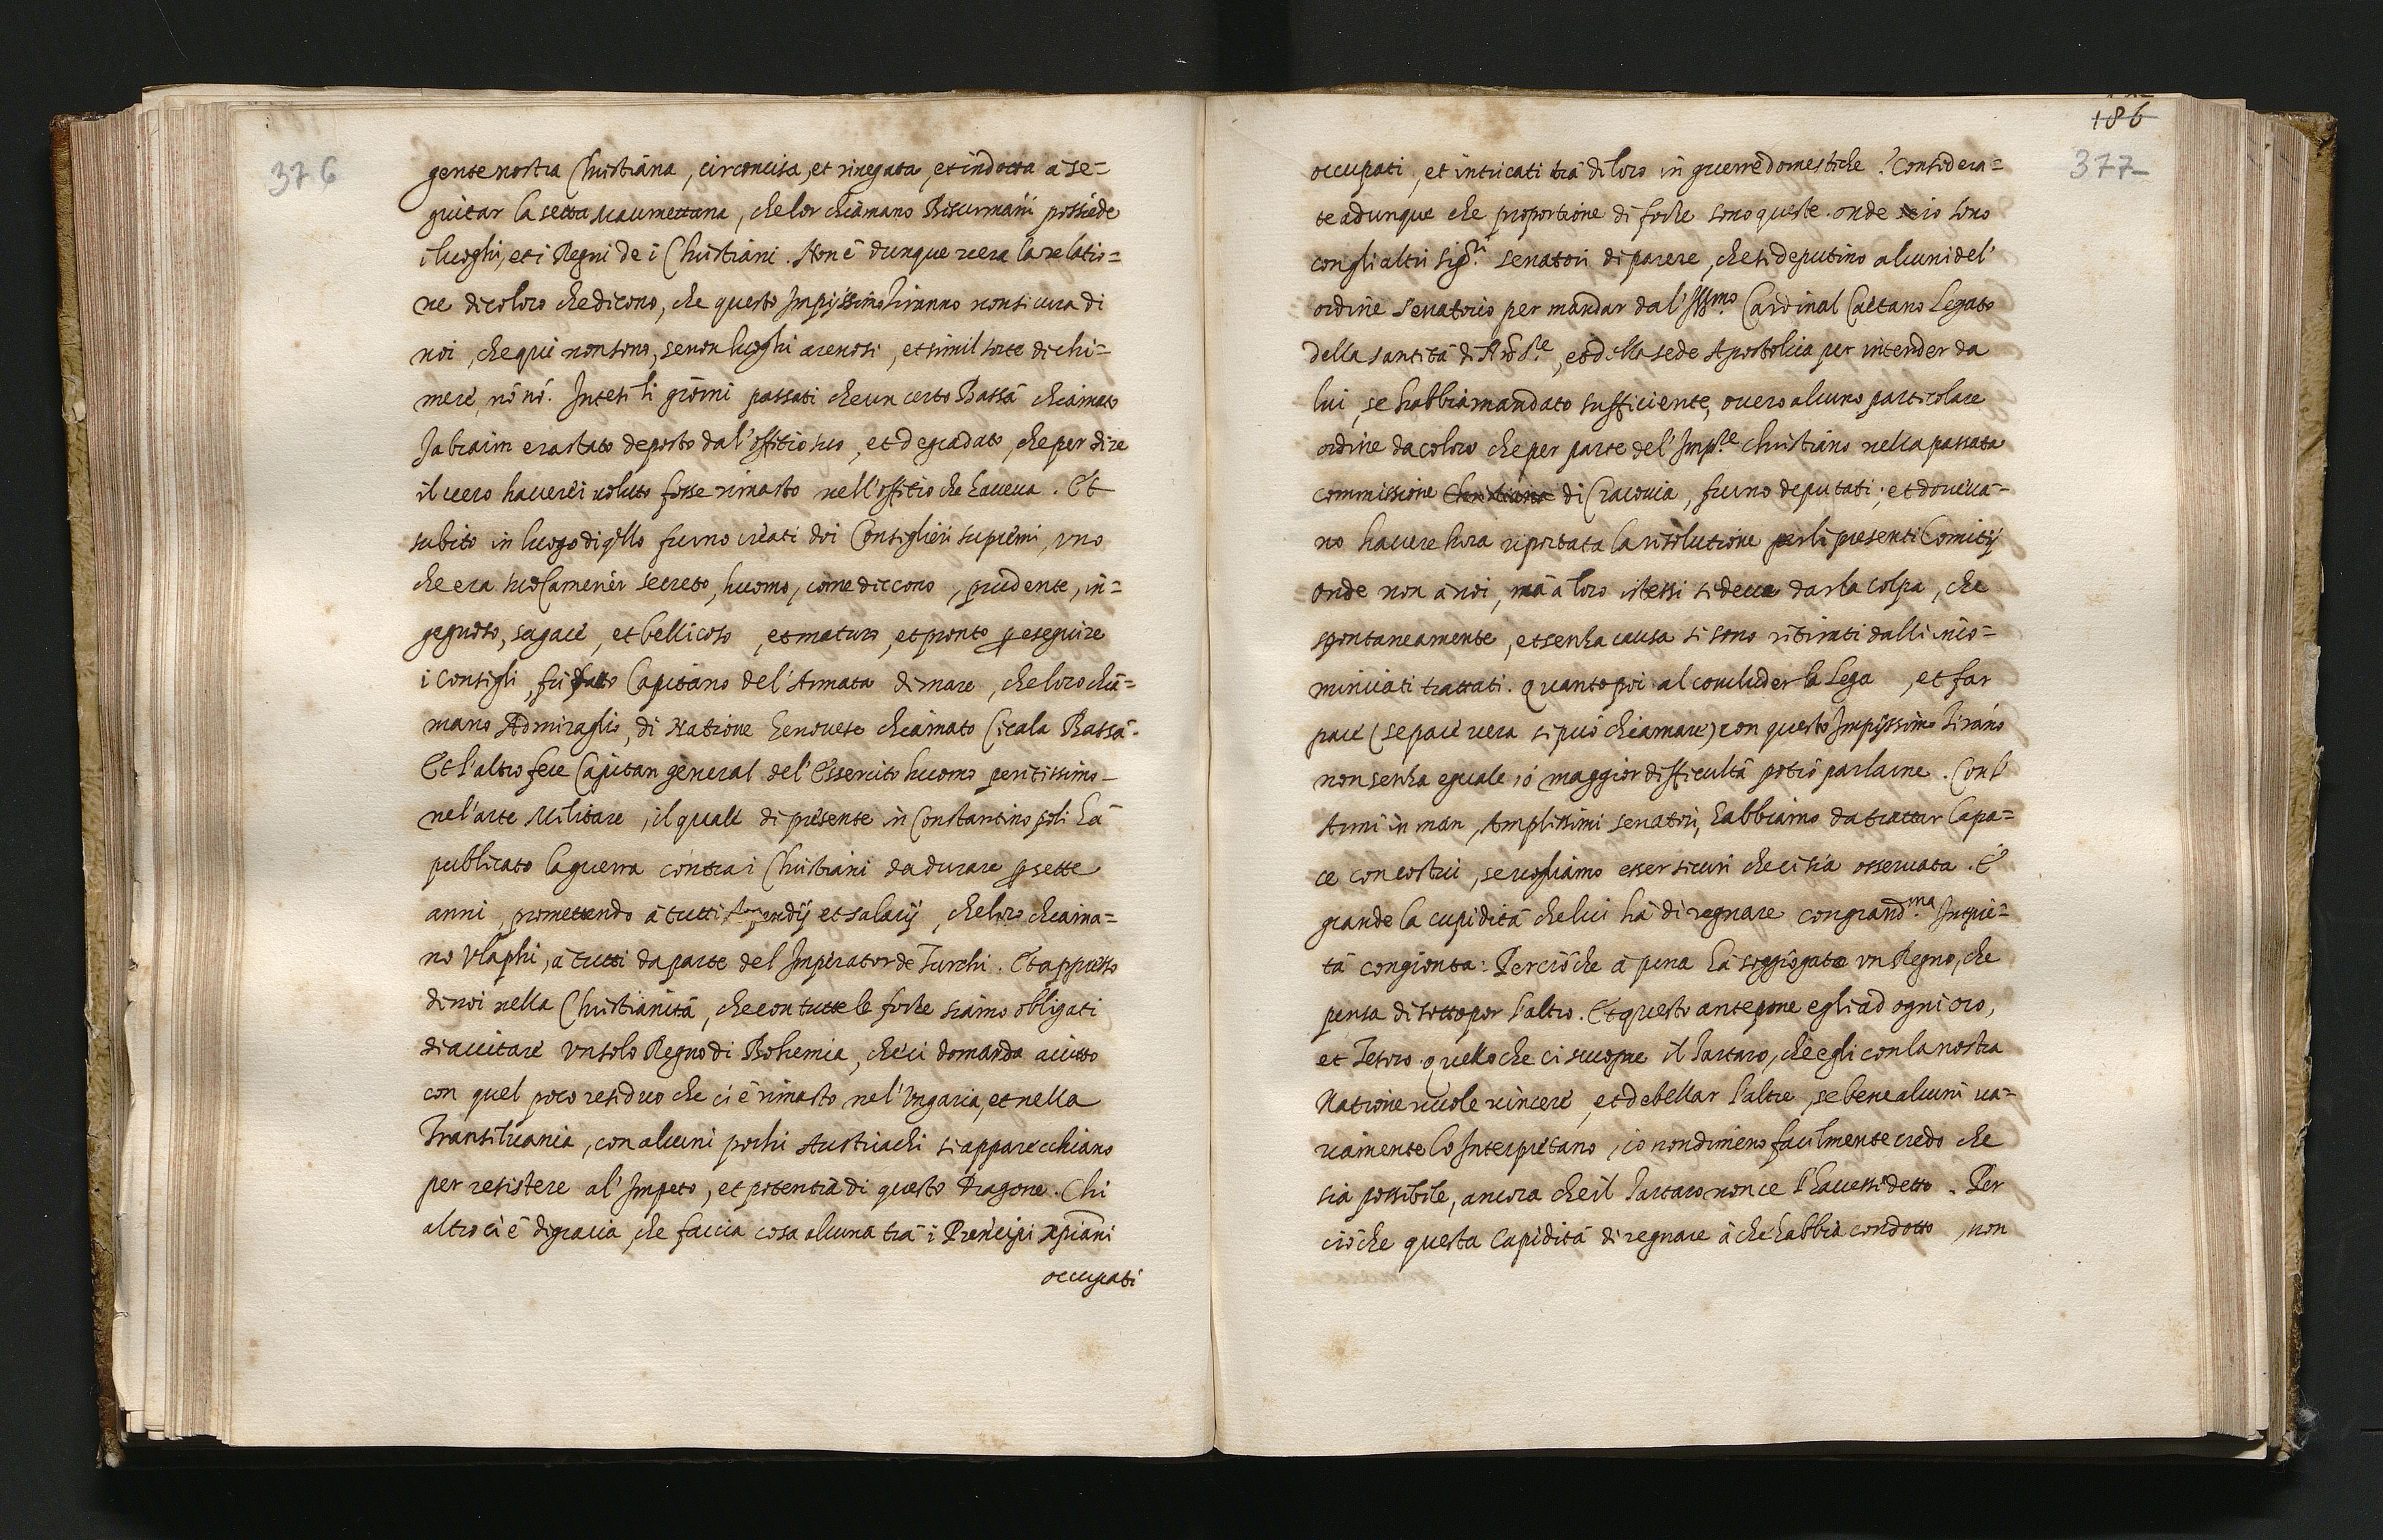 376
gente nostra Christiana, circoncisa, et rinegata, et indotta à se=
guitar la setta Maumettana, che lor chiamano Bisurmani possiede
i luoghi, et i Regni de i Christiani. Non è dunque vera la relatio=
ne di coloro che dicono, che questo Impijssimo Tiranno non si cura di
noi, che qui non sono, se non luoghi arenosi, et simil sorte di chi=
mere, nò nò. Intesi li giorni passati che un certo Bassà chiamato
Iabraim era stato deposto dal'offitio suo, et degradato, che per dire
il vero haverei voluto fosse rimasto nell'offitio che haveva. Et
subito in luogo di q̃llo furno creati doi Consiglieri supremi, vno
che era suo Camerier secreto, huomo, come diccono, prudente, in=
gegnoso, sagace, et bellicoso, et maturo, et pronto p eseguire
i consigli, fù fatto Capitano del'Armata di mare, che loro chia=
mano Admiraglio, di Natione Genovese chiamato Cicala Bassà.
Et l'altro fece Capitan general del'Essercito huomo peritissimo
nel'arte Militare, il quale di presente in Constantinopoli hà
publicato la guerra contra i Christiani da durare p sette
anni, promettendo à tutti stipendij et salarij, che loro chiama=
no Vlaphi, à tutti da parte del Imperator de Turchi. Et appresso
di noi nella Christianità, che con tutte le forze siamo obligati
di aiutare vn solo Regno di Bohemia, che ci domanda aiutto
con quel poco residuo che ci è rimasto nel'Ungaria, et nella
Transilvania, con alcuni pochi Austriachi si apparecchiano
per resistere al'Impeto, et potentia di questo Dragone. Chi
altro ci è di gracia, che faccia cosa alcuna trà i Prencipi xpiani
occupati
186
377
occupati, et intricati trà di loro in guerre domestiche? Considera=
te adunque che proportione di forze sono queste. onde io sono
con gli altri Sig.ri Senatori di parere, che si deputino alcuni del'
ordine Senatorio per mandar dal'Ill.mo Cardinal Caetano Legato
della Santità di Nrõ S.re, et della Sede Apostolica per intender da
lui, se habbia mandato sufficiente, overo alcuno particolare
ordine da coloro che per parte del'Imp.re Christiano nella passata
commissione Christiana di Cracovia, furno deputati; et doveva=
no havere hora riportata la risolutione per li presenti Comitij
onde non à noi, mà à loro istessi si deve dar la colpa, che
spontaneamente, et senza causa si sono ritirati dalli inco=
minciati trattati. Quanto poi al concluder la Lega, et far
pace (se pace vera si può chiamare) con questo Impijssimo Tirãno
non senza eguale, ò maggior difficultà potrò parlarne. Con l'
Armi in man, Amplissimi Senatori, habbiamo da trattar la pa=
ce con costui, se vogliamo esser sicuri che ci sia osservata. È
grande la cupidità che lui hà di regnare con grand.ma Impie=
tà congionta: Perciò che à pena hà soggiogato un Regno, che
pensa di sottopor l'altro. Et questo antepone egli ad ogni oro,
et Tesoro quello che ci scuopre il Tartaro, che egli con la nostra
Natione vuole vincere, et debellar l'altre, se bene alcuni va=
riamente lo Interpretano, io nondimeno facilmente credo che
sia possibile, ancora che il Tartaro non ce l'havessi detto. Per
ciò che questa Cupidità di regnare à che habbia condotto, non